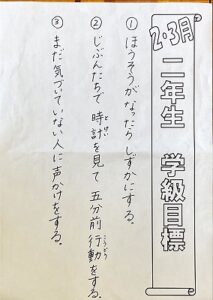 2・3月 二年生 学級目標
①ほうそうがなったらしずかにする。
②じぶんたちで時計を見て五分前行動をする。
とけい
こうどう
③まだ気づいていない人に声かけをする。